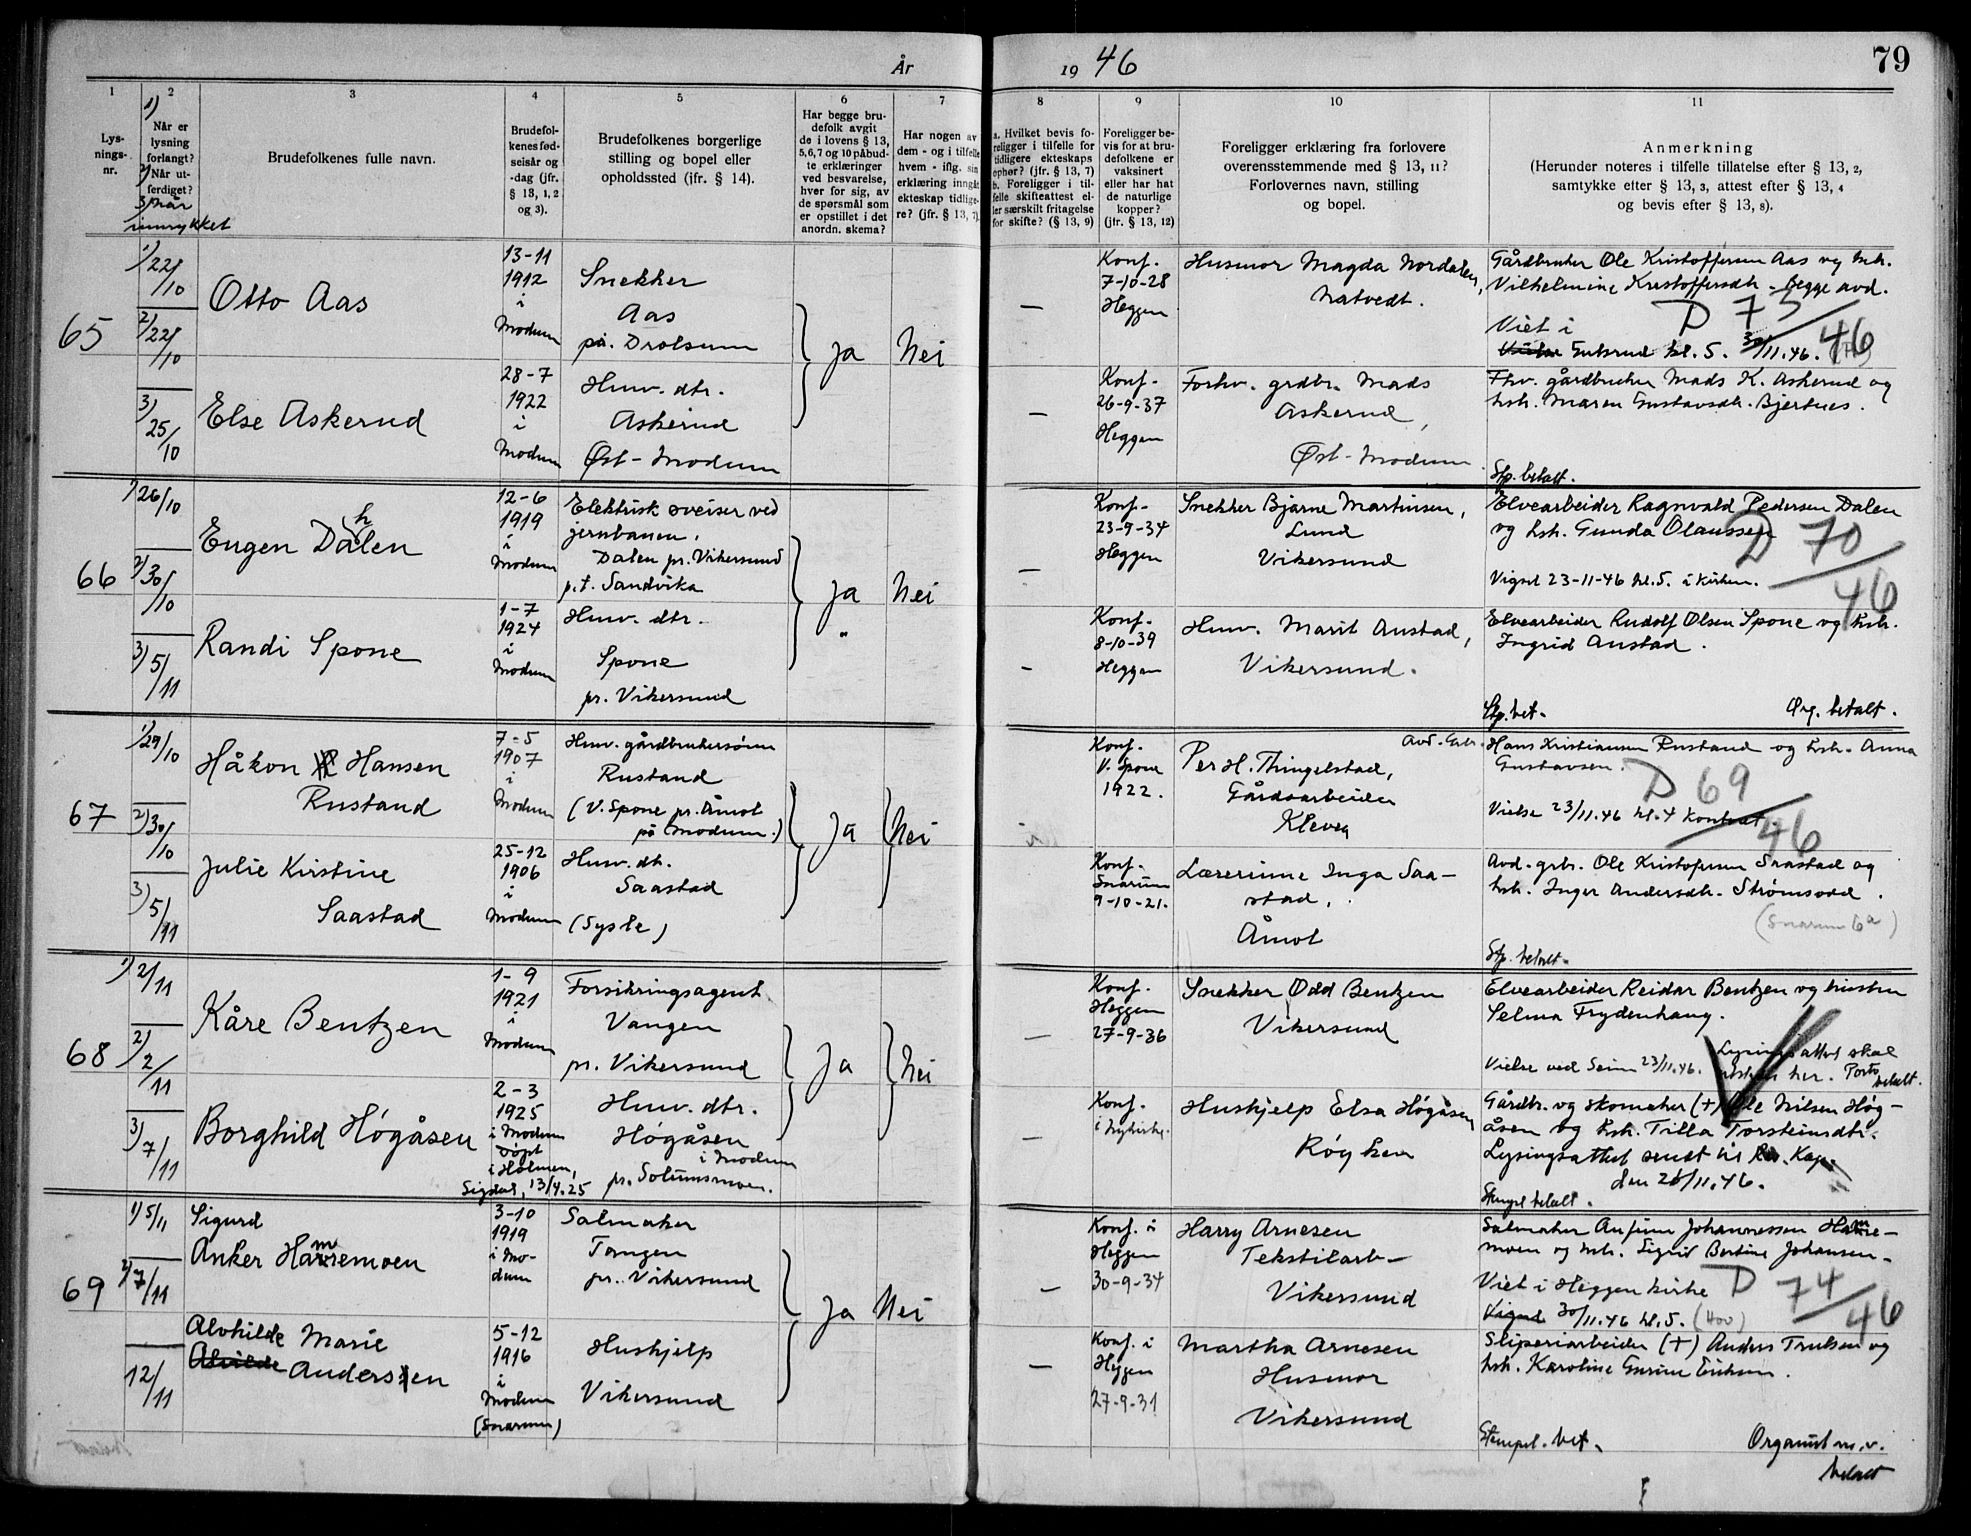 År
19 46
79
1
Lys-
nings-
nr.
2
1)
Når er
lysning
forlangt?
2)
Når ut-
ferdiget?
3) Når
innrykket
3
Brudefolkenes fulle navn.
4
Brudefol-
kenes fød-
selsår og
-dag (jfr.
§ 13, 1, 2
og 3).
5
Brudefolkenes borgerlige
stilling og bopel eller
opholdssted (jfr. § 14).
6
Har begge bru-
defolk avgit
de i lovens § 13,
5, 6, 7 og 10 påbud-
te erklæringer
ved besvarelse,
hver for sig, av
de spørsmål som
er opstillet i det
anordn. skema?
7
Har nogen av
dem - og i tilfelle
hvem - iflg. sin
erklæring inngått
ekteskap tidlige-
re? (jfr. § 13, 7).
8
a. Hvilket bevis fo-
religger i tilfelle for
tidligere ekteskaps
ophør? (jfr. § 13, 7)
b. Foreligger i til-
felle skifteattest el-
ler særskilt fritagelse
for skifte? (§ 13, 9)
9
Foreligger be-
vis for at bru-
defolkene er
vaksinert
eller har hat
de naturlige
kopper?
(jfr. § 13, 12)
10
Foreligger erklæring fra forlovere
overensstemmende med § 13, 11?
Forlovernes navn, stilling
og bopel.
11
Anmerkning
(Herunder noteres i tilfelle tillatelse efter § 13, 2,
samtykke efter § 13, 3, attest efter § 13, 4
og bevis efter § 13, 8).
65
1) 22/10
2) 22/10
3) 25/10
Otto Aas
13-11
1912
i
Modum
Snekker
Aas
på Drolsum
Ja
Nei
—
Konf.
7-10-28
Heggen
Husmor Magda Nordalen,
Natvedt.
Gårdbruker Ole Kristoffersen Aas og hh.
Vilhelmine Kristoffersdtr. Begge avd.
D 73/46
Viet i
kl. 5. 30/11.46.
Else Askerud
28-7
1922
i
Modum
Huw. dtr.
Askerud
Øst-Modum
—
Konf.
26-9-37
Heggen
Forhv. grdbr. Mads
Askerud,
Øst-Modum
Fhv. gårdbruker Mads K. Askerud og
hh. Maren Gustavsdtr. Bjertnes.
Stp. betalt.
66
1) 26/10
2) 30/10
3) 5/11
Eugen Dahlen
12-6
1919
i
Modum
Elektrisk sveiser ved
jernbanen.
Dalen pr. Vikersund
p.t. Sandvika
Ja
"
Nei
—
Konf.
23-9-34
Heggen
Snekker Bjarne Martinsen,
Lund
Vikersund
Elvearbeider Ragnvald Pedersen Dalen
og hh. Gunda Olaussen
D 70/46
Vigsel 23-11-46 kl. 5. i kirken.
Randi Spone
1-7
1924
i
Modum
Huw. dtr.
Spone
pr. Vikersund
-
Konf.
8-10-39
Heggen
Huw. Marit Austad,
Vikersund.
Elvearbeider Rudolf Olsen Spone og hh.
Ingrid Austad.
Stp. bet.
Org. betalt.
67
1) 29/10
2) 30/10
3) 5/11
Håkon Hansen
Rustand
7-5
1907
i
Modum
Huw. gårdbrukersønn
Rustand
(V. Spone pr. Åmot
på Modum.)
Ja
Nei
Konf.
V. Spone
1922.
Per H. Thingelstad,
Gårdsarbeider
Kleven
Avd. Grbr. Hans Kristiansen Rustand og hh. Anna
Gustavsen.
D 69/46
Vielse 23/11.46 kl. 4
Julie Kirstine
Saastad
25-12
1906
i
Modum
Huw. dtr.
Saastad
(Sysle)
Konf.
Snarum
9-10-21.
Lærerinne Inga Saa-
stad,
Åmot
Avd. grbr. Ole Kristofersen Saastad og
hh. Inger Andersdtr. Strømsodd.
(Snarum 6a)
Stp. betalt.
68
1) 2/11
2) 2/11
3) 7/11
Kåre Bentzen
1-9
1921
i
Modum
Forsikringsagent
Vangen
pr. Vikersund
Ja
Nei
—
Konf.
Heggen
27-9-36
Snekker Odd Bentzen
Vikersund
Elvearbeider Reidar Bentzen og hustru
Selma Frydenhaug.
Vielse ved 23/11.46. Lysingsattest skal
her. Porto
betalt.
Borghild Høgåsen
2-3
1925
i Modum
døpt
i Holmen,
Sigdal, 13/4.25
Huw. dtr.
Høgåsen
i Modum
pr. Solumsmoen.
—
Konf.
i Nykirke.
Hushjelp Elsa Høgåsen
Røyken
Gårdbr. og skomaker (+) Ole Nilsen Høg-
åsen og hh. Tilla Torsteinsdtr.
Lysingsattest sendt til Kap.
den 26/11.46.
Stempel betalt.
69
1) 5/11
2) 7/11
12/11
Sigurd
Anker Hammemoen
3-10
1919
i Mo-
dum
Salmaker
Tangen
pr. Vikersund
Ja
Nei
—
Konf. i
Heggen
30-9-34
Harry Arnesen
Tekstilarb-
Vikersund
Salmaker Anfinn Johannessen Hamme-
moen og hh. Sigrid Bertine Johansen.
D 74/46
Viet i Heggen kirke
30/11.46 kl. 5. (Hov)
Alvhilde Marie
Alvilde Andersen
5-12
1916
i
Modum
(Snarum)
Hushjelp
Vikersund
—
Konf. i
Heggen
27-9-31
Martha Arnesen
Husmor
Vikersund
Sliperiarbeider (+) Anders Trulsen og
hh. Karoline Gurine Eriksen.
Stempel. bet.
Organist m.v.
betalt